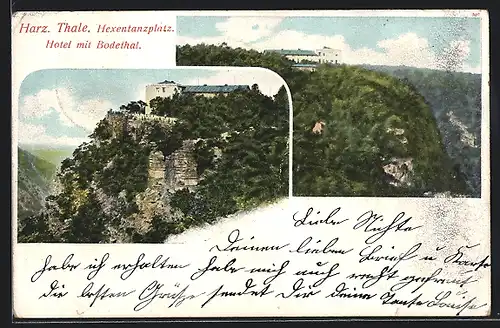 Harz. Thale. Hexentanzplatz.
Hotel mit Bodethal.
Liebe Nichte
Deinen lieben Brief u Karte
habe ich erhalten habe mich auch recht gefreut
die besten Grüße sendet Dir deine Tante Louise